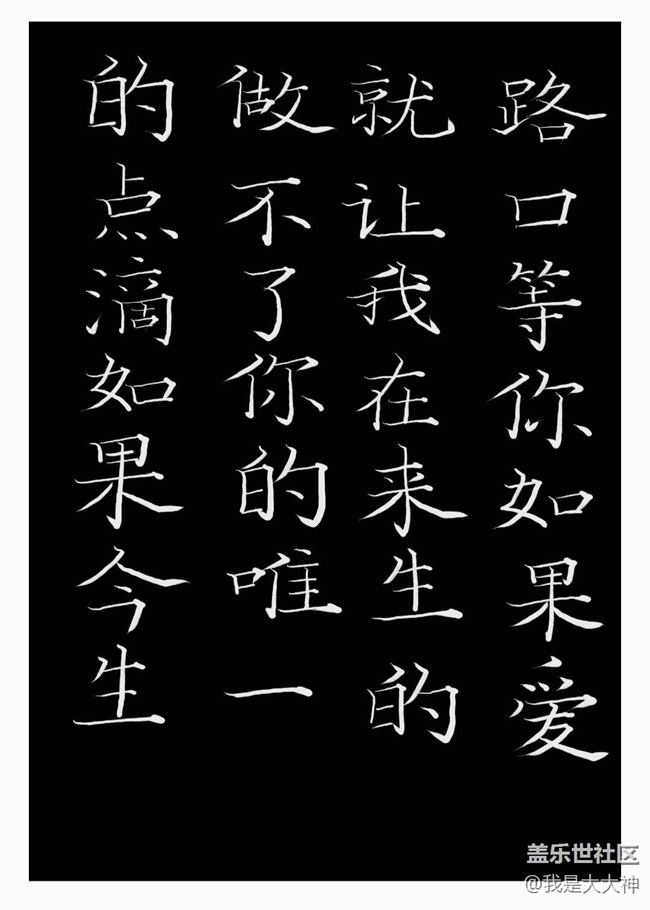 的点滴如果今生
做不了你的唯一
就让我在来生的
路口等你如果爱
盖乐世社区
@我是大大神